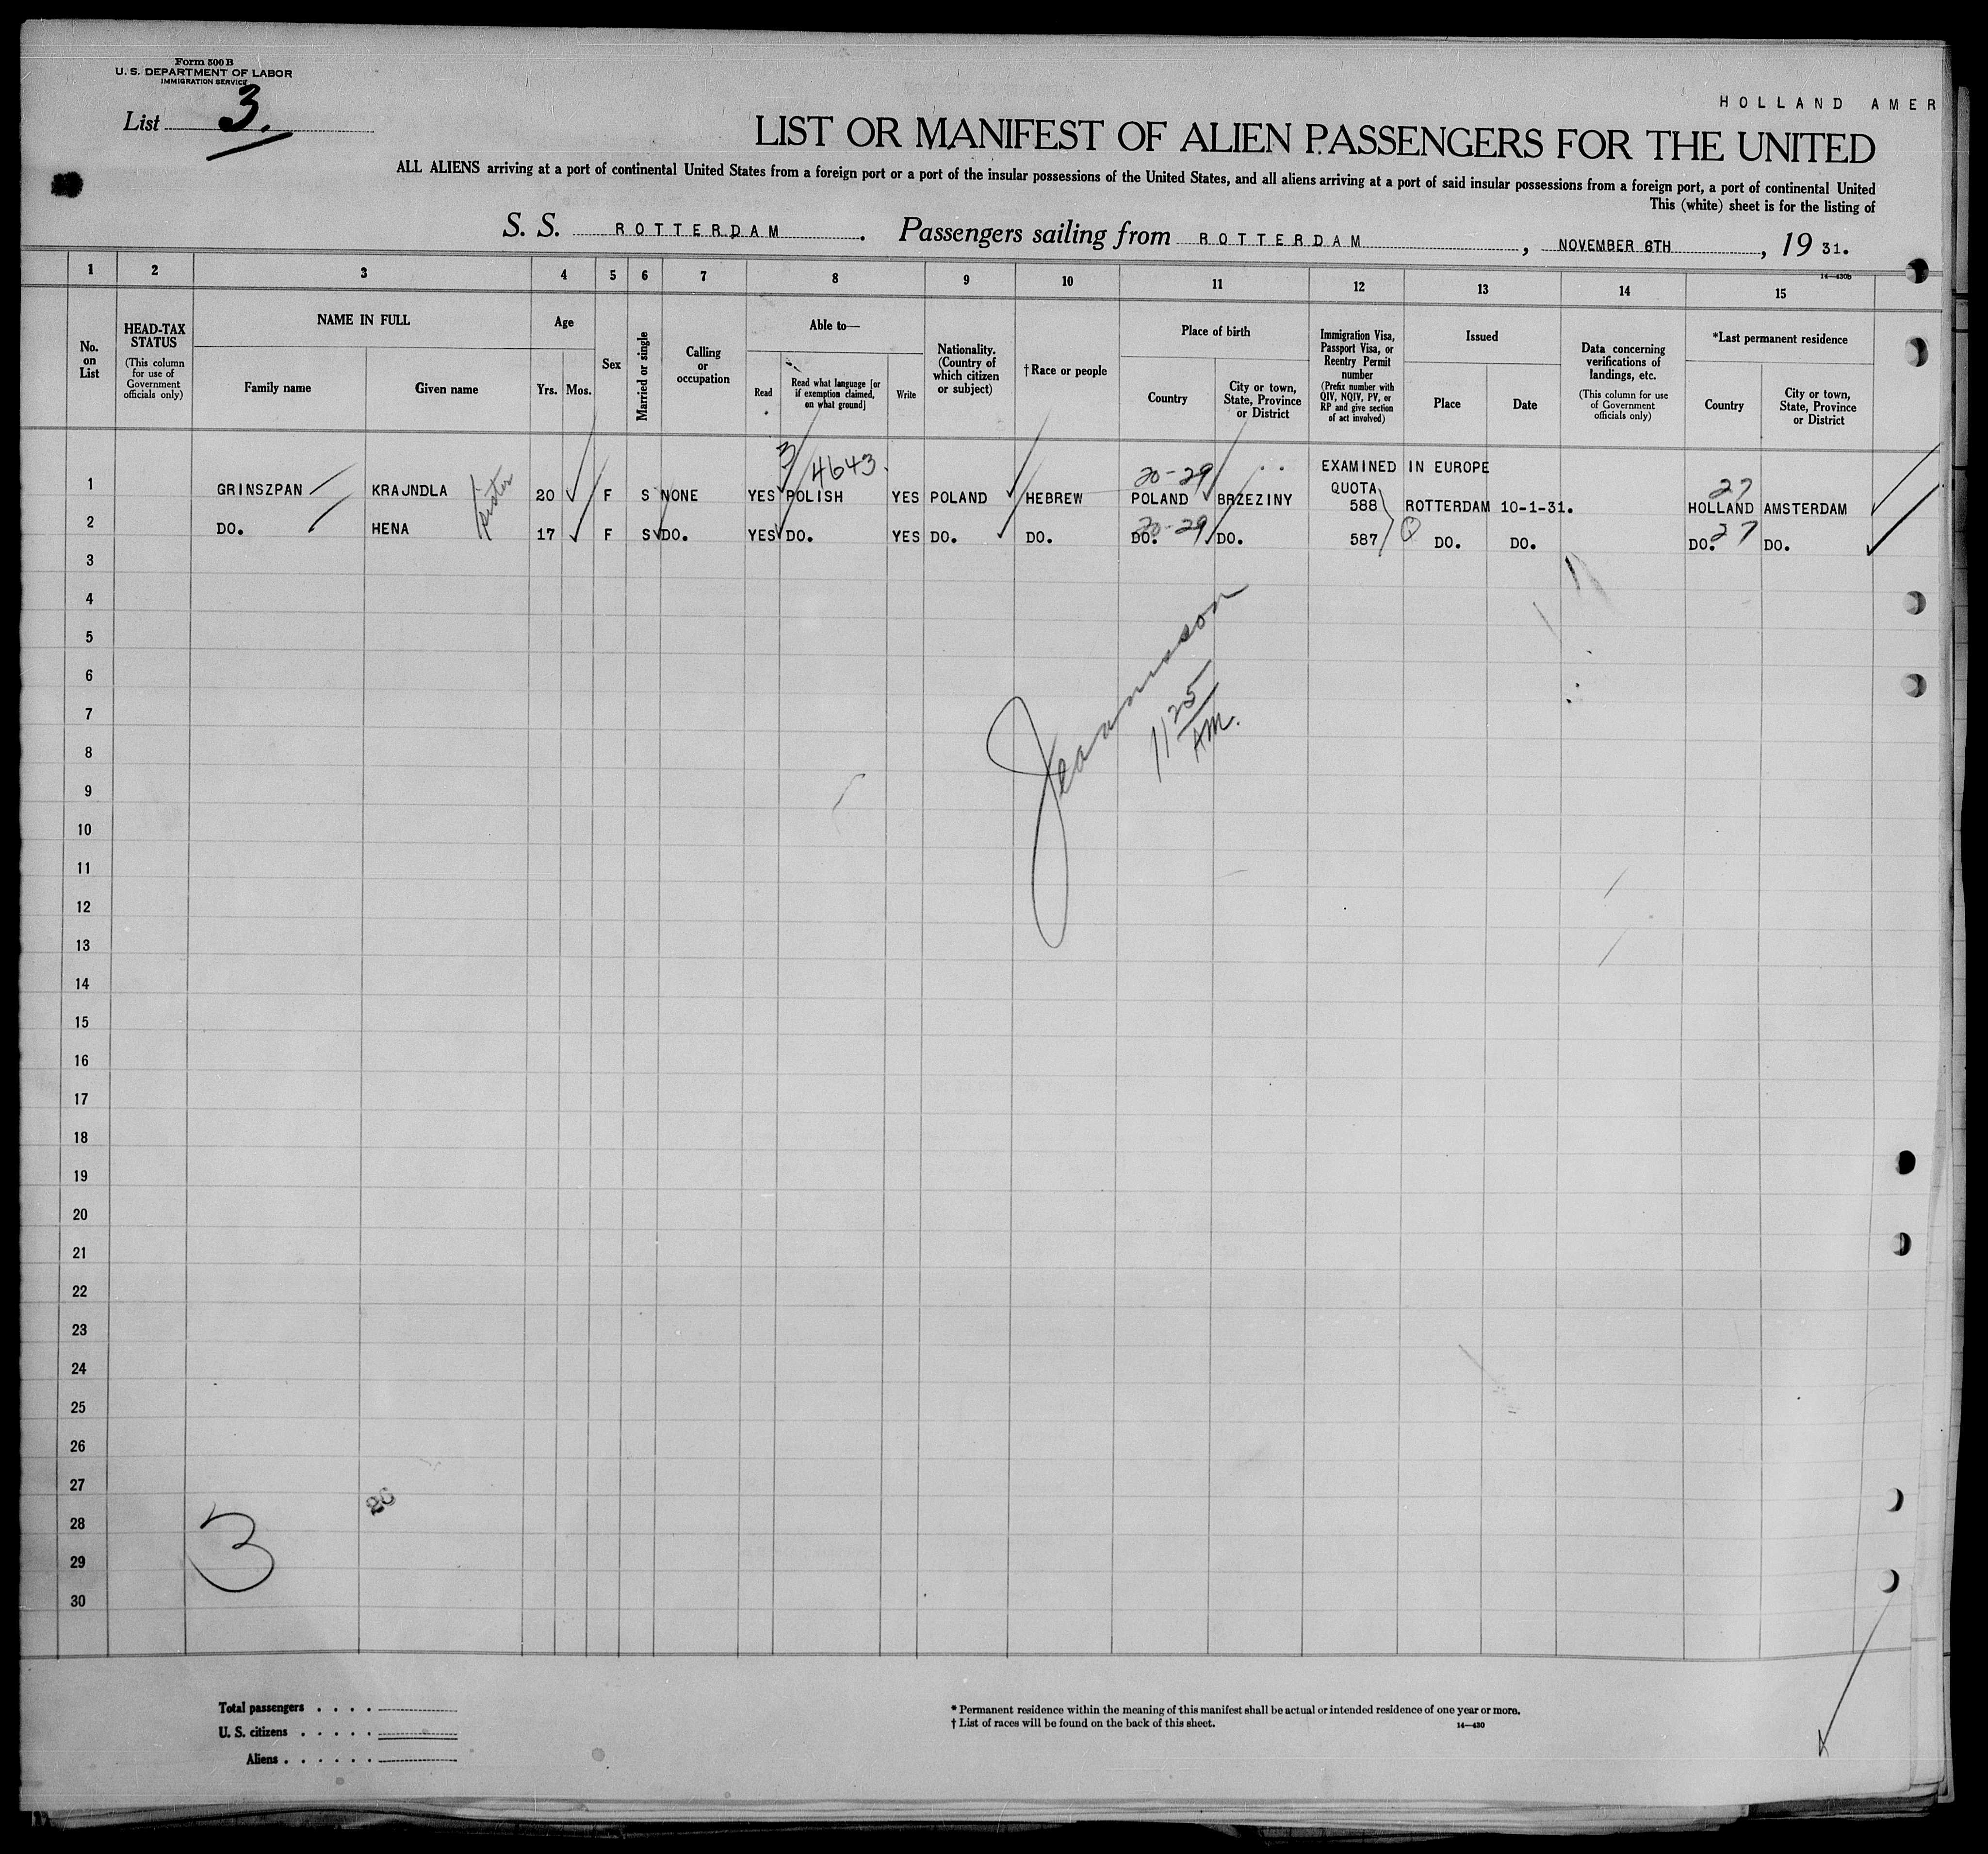 Form 500 B
U. S. DEPARTMENT OF LABOR
IMMIGRATION SERVICE
List 3.
HOLLAND AMER
LIST OR MANIFEST OF ALIEN PASSENGERS FOR THE UNITED
ALL ALIENS arriving at a port of continental United States from a foreign port or a port of the insular possessions of the United States, and all aliens arriving at a port of said insular possessions from a foreign port, a port of continental United
This (white) sheet is for the listing of
S. S. ROTTERDAM. Passengers sailing from ROTTERDAM, NOVEMBER 6TH, 19 31.
14—430b
1 2 3 4 5 6 7 8 9 10 11 12 13 14 15
No. on List
HEAD-TAX STATUS
(This column for use of Government officials only)
NAME IN FULL
Family name Given name
Age
Yrs. Mos.
Sex
Married or single
Calling or occupation
Able to—
Read
Read what language [or if exemption claimed, on what ground]
Write
Nationality. (Country of which citizen or subject)
† Race or people
Place of birth
Country
City or town, State, Province or District
Immigration Visa, Passport Visa, or Reentry Permit number
(Prefix number with QIV, NQIV, PV, or RP and give section of act involved)
Issued
Place Date
Data concerning verifications of landings, etc.
(This column for use of Government officials only)
*Last permanent residence
Country
City or town, State, Province or District
3/4643. 20-29 EXAMINED IN EUROPE
QUOTA 27
1 GRINSZPAN KRAJNDLA sister 20 F S NONE YES POLISH YES POLAND HEBREW POLAND BRZEZINY 588 ROTTERDAM 10-1-31. HOLLAND AMSTERDAM
2 DO. HENA 17 F S DO. YES DO. YES DO. DO. DO. 20-29 DO. 587 Q DO. DO. DO. 27 DO.
3
4
5
6
7
8
9
10
11
12
13
14
15
16
17
18
19
20
21
22
23
24
25
26
27
28
29
30
11 25 AM.
3
26
Total passengers . . . .
U. S. citizens . . . . .
Aliens . . . . . .
* Permanent residence within the meaning of this manifest shall be actual or intended residence of one year or more.
† List of races will be found on the back of this sheet.
14—430